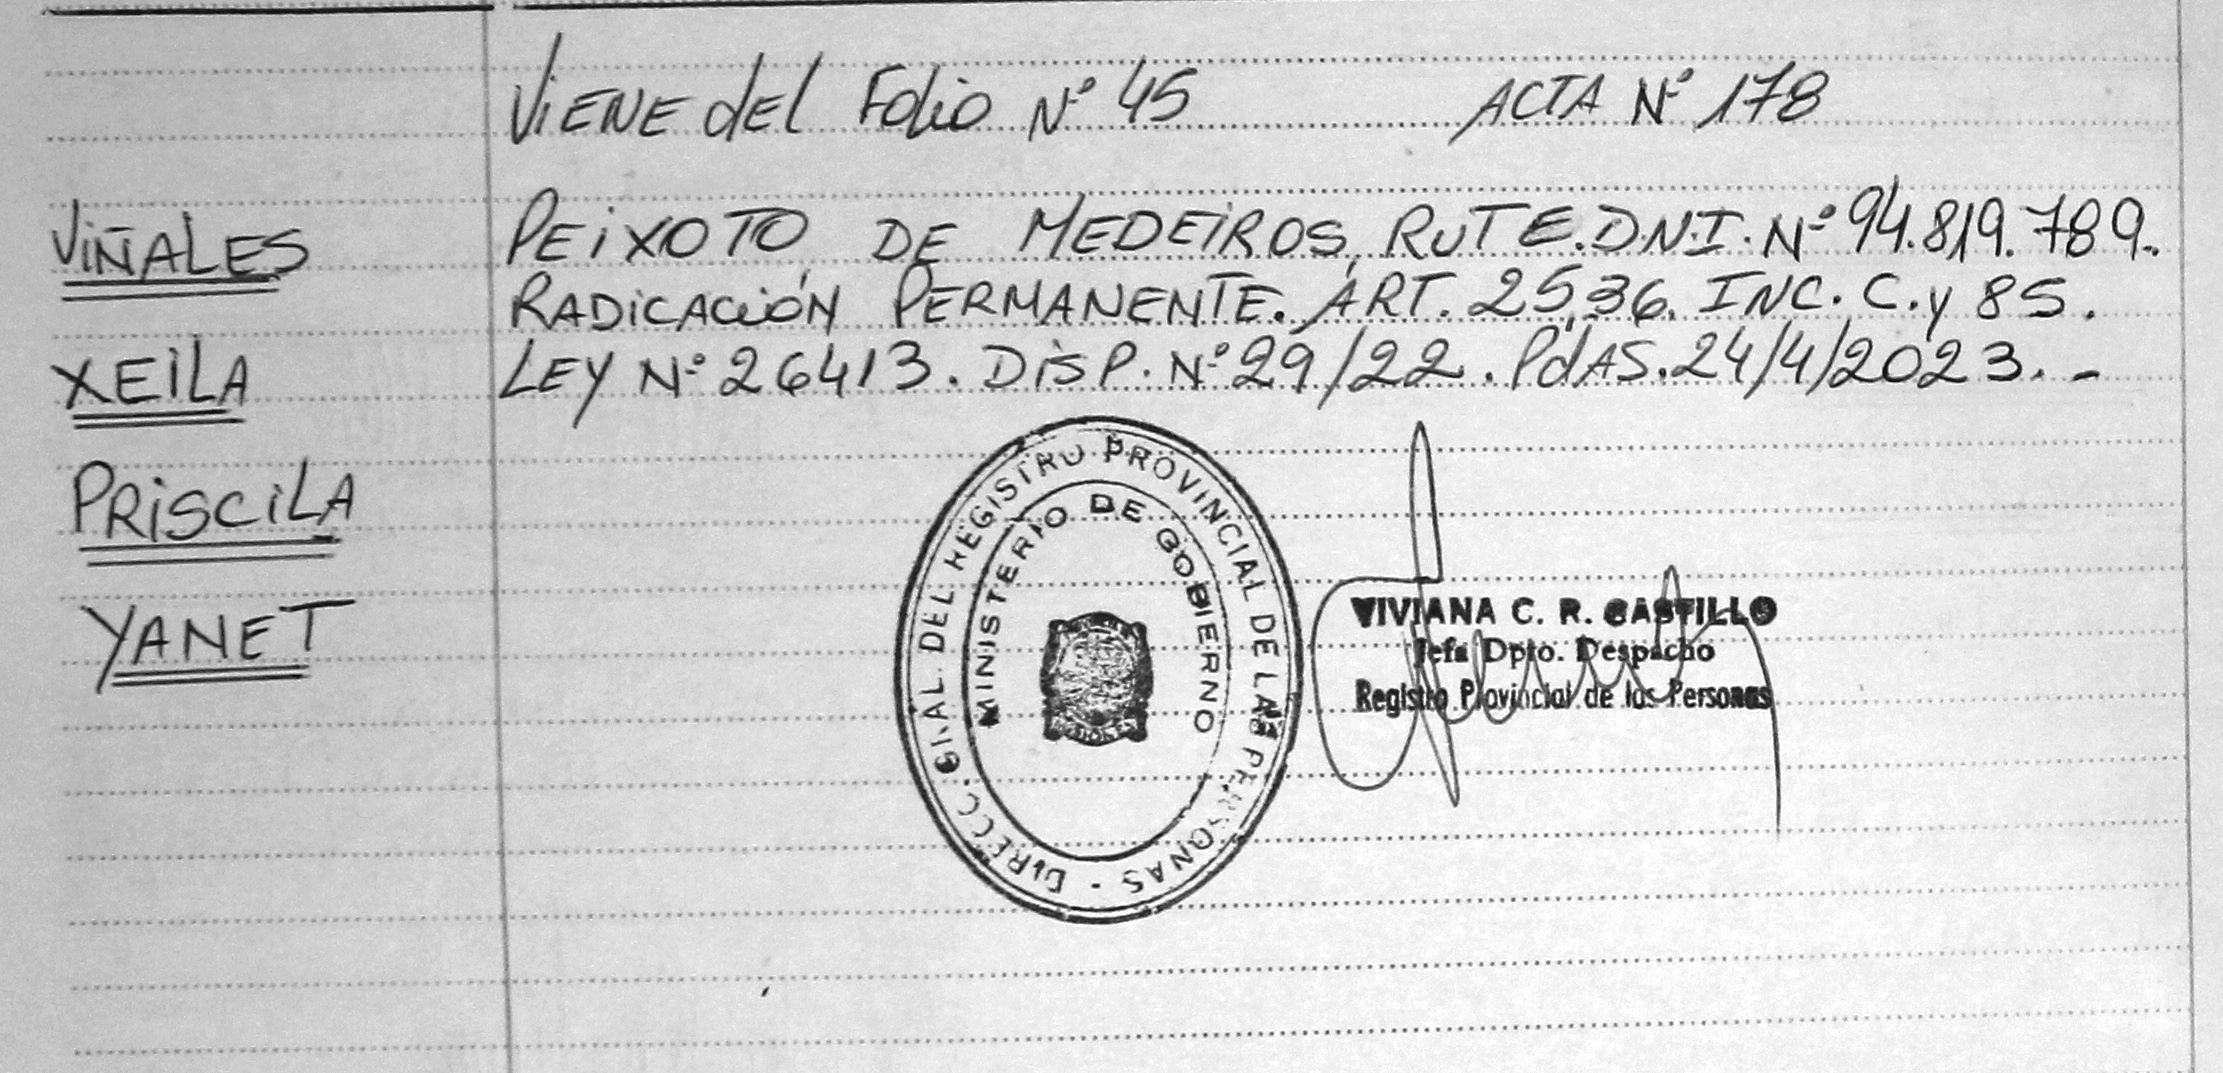 Viene del Folio Nº 45 ACTA Nº 178
VIÑALES
XEILA
PRISCILA
YANET
PEIXOTO DE MEDEIROS, RUTE. D.N.I. Nº 94.819.789.
RADICACIÓN PERMANENTE. ART. 25,36. INC. C. y 85.
LEY Nº 26413. DISP. Nº 29/22. PdAS. 24/4/2023. -
DIRECC. GRAL. DEL REGISTRO PROVINCIAL DE LAS PERSONAS -
MINISTERIO DE GOBIERNO
VIVIANA C. R. CASTILLO
Jefa Dpto. Despacho
Registro Provincial de las Personas